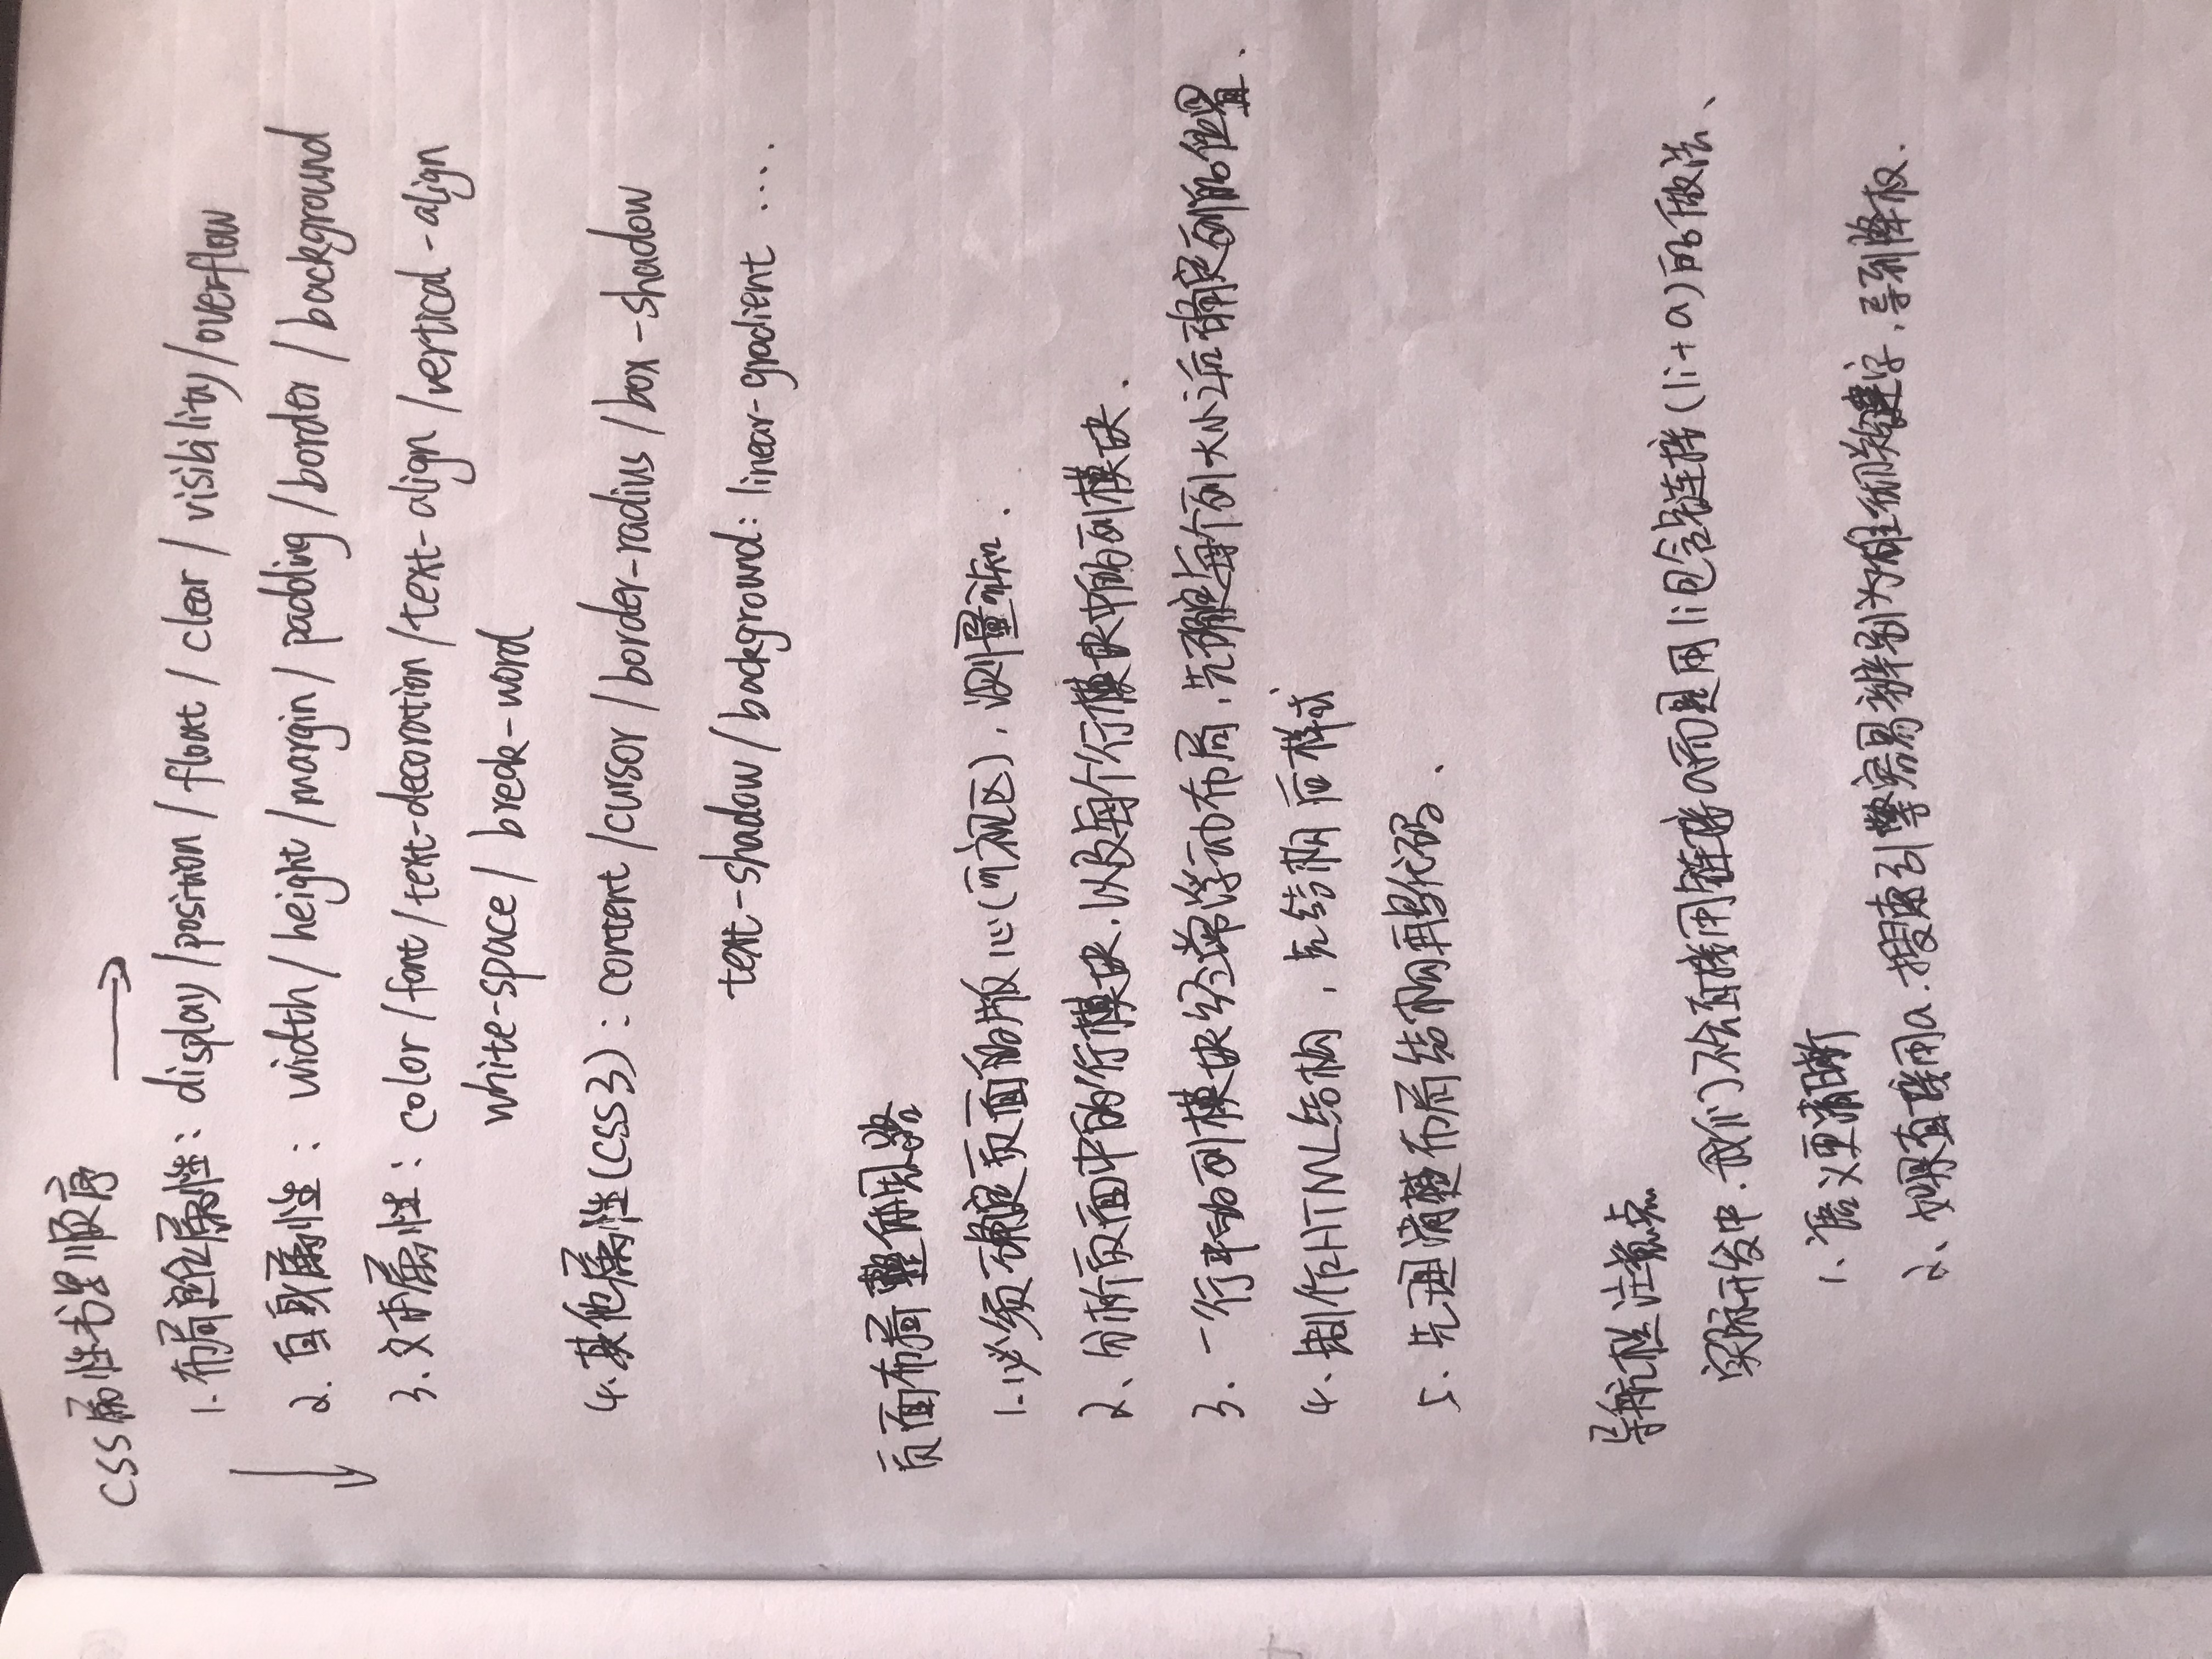 CSS属性书写顺序 →
1. 布局定位属性: display/position/float/clear/visibility/overflow
2. 自身属性: width/height/margin/padding/border/background
3. 文本属性: color/font/text-decoration/text-align/vertical-align
white-space/break-word
4. 其他属性(CSS3): content/cursor/border-radius/box-shadow
text-shadow/background: linear-gradient ....
页面布局整体思路
1. 必须确定页面的版心(可视区),测量可知.
2、分析页面中的行模块,以及每个行模块中的列模块.
3. 一行中的列模块经常浮动布局,先确定每个列大小之后确定列的位置、
4、制作HTML结构,先结构后样式
5、先理清楚布局结构再写代码、
导航栏注意点
实际开发中,我们不会直接用链接a而是用li包含链接(li+a)的做法、
1、语义更清晰
2、如果直接用a,搜索引擎容易辨别为堆砌关键字,导到降权.